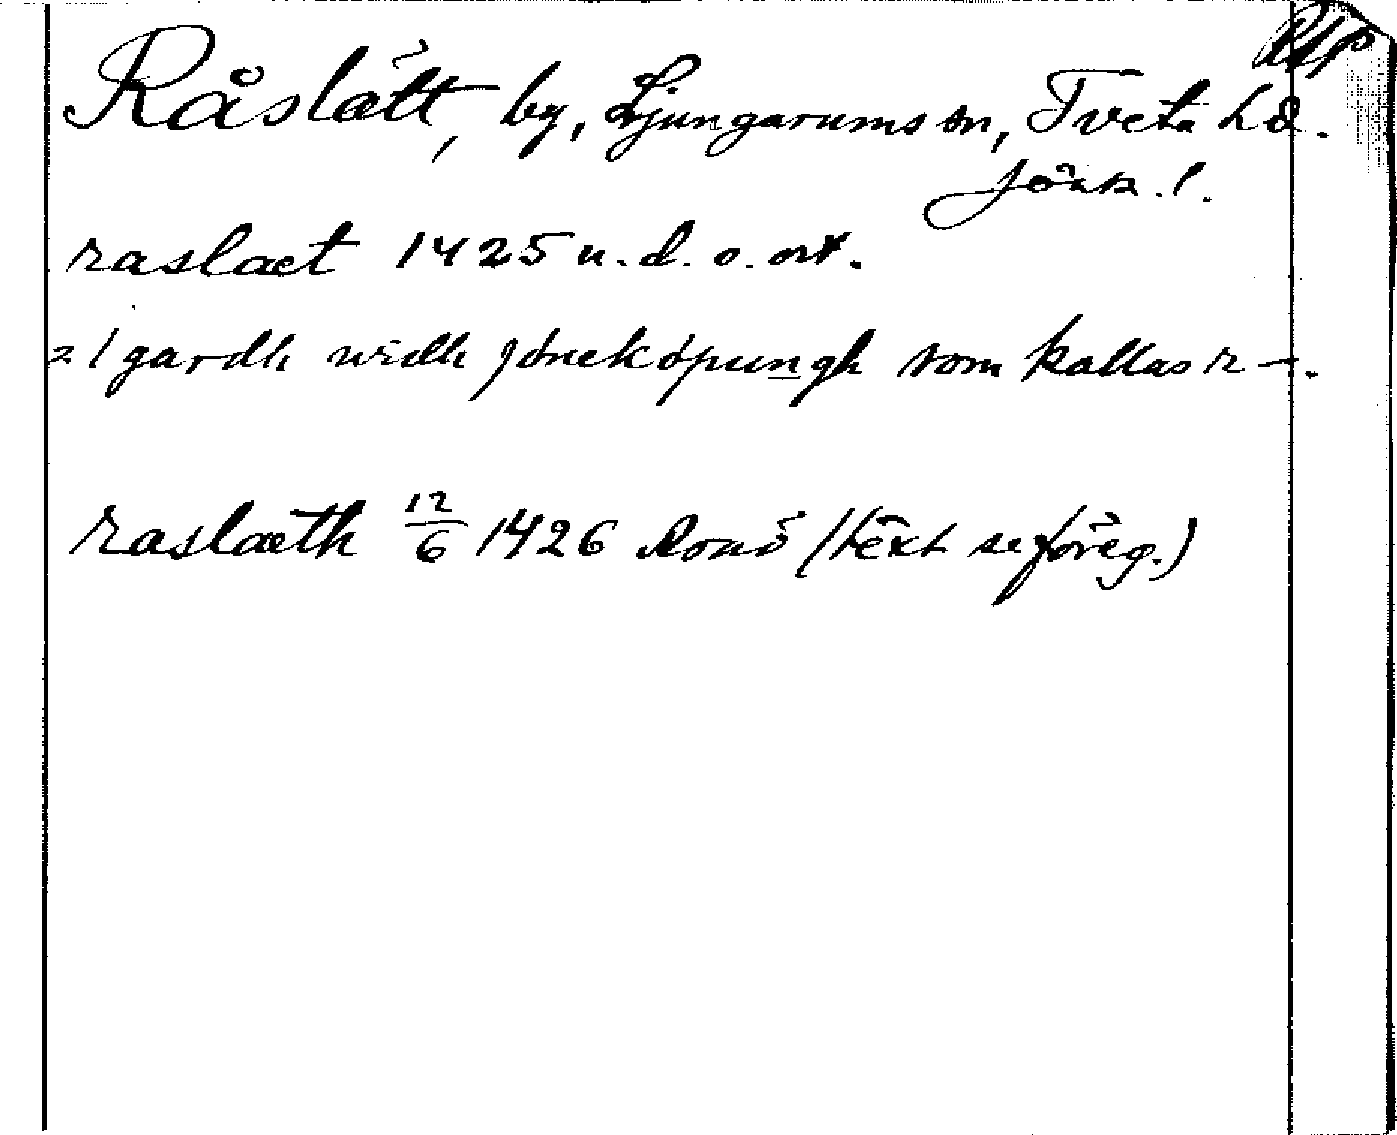 Råslätt, by, Ljungarums sn, Tveta hd.
Jönk. l.
raslæt 1425 u. d. o. ort.
21 gardh widh jönekøpungh som kallas r –.
raslæth 12/6 1426 Ronö (text se föreg.)